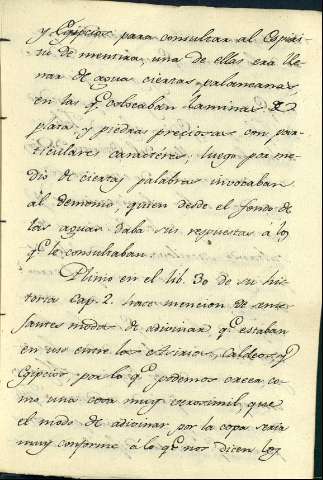 y Egipcios para consultar al Espiri-
tu de mentira, una de ellas era lle-
nar de agua ciertas palanganas,
en las q.e colocaban laminas de
plata y piedras preciosas con par-
ticulares caractéres; luego por me-
dio de ciertas palabras invocaban
al demonio, quien desde el fondo de
las aguas daba sus respuestas á los
q.e le consultaban.
Plinio en el lib. 30 de su his-
toria cap. 2. hace mencion de seme-
jantes modos de adivinar q.e estaban
en uso entre los Asirios, Caldeos, y
Egipcios por lo q.e podemos creer co-
mo una cosa muy verosimil, que
el modo de adivinar por la copa seria
muy conforme á lo q.e nos dicen los